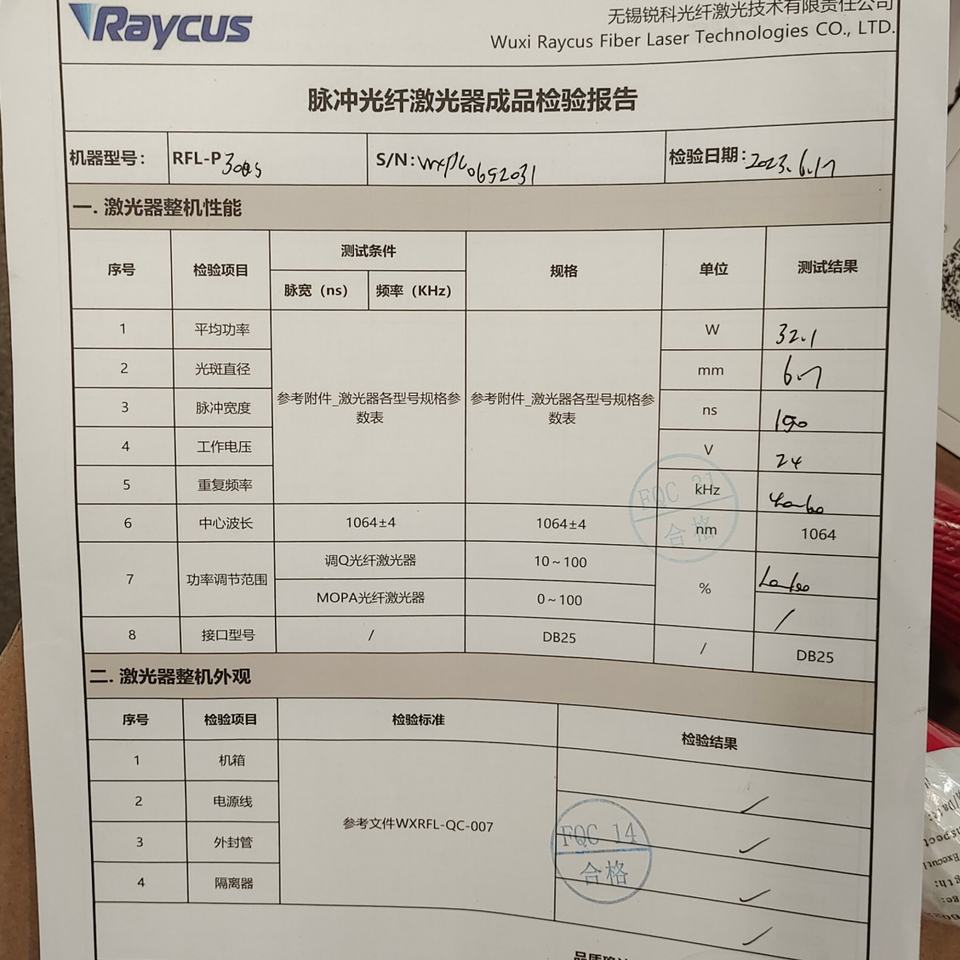 Raycus
无锡锐科光纤激光技术有限责任公司
Wuxi Raycus Fiber Laser Technologies CO., LTD.
脉冲光纤激光器成品检验报告
机器型号： RFL-P 30QS S/N: 检验日期: 2023.6.17
一. 激光器整机性能
序号 检验项目 测试条件 规格 单位 测试结果
脉宽（ns） 频率（KHz）
1 平均功率 W 32.1
2 光斑直径 mm 6.7
3 脉冲宽度 ns
参考附件_激光器各型号规格参数表 参考附件_激光器各型号规格参数表
4 工作电压 V 24
5 重复频率 kHz
6 中心波长 1064±4 1064±4 nm 1064
7 功率调节范围 调Q光纤激光器 10~100 %
MOPA光纤激光器 0~100 /
8 接口型号 / DB25 / DB25
合格
二. 激光器整机外观
序号 检验项目 检验标准 检验结果
1 机箱
2 电源线
参考文件WXRFL-QC-007
3 外封管
4 隔离器
FQC 14
合格